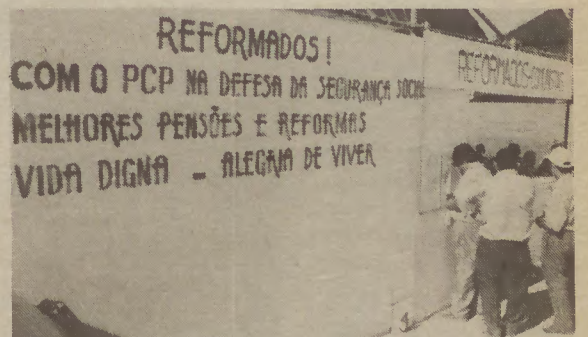 REFORMADOS!
COM O PCP NA DEFESA DA SEGURANÇA SOCIAL
MELHORES PENSÕES E REFORMAS
VIDA DIGNA - ALEGRIA DE VIVER
REFORMADOS-